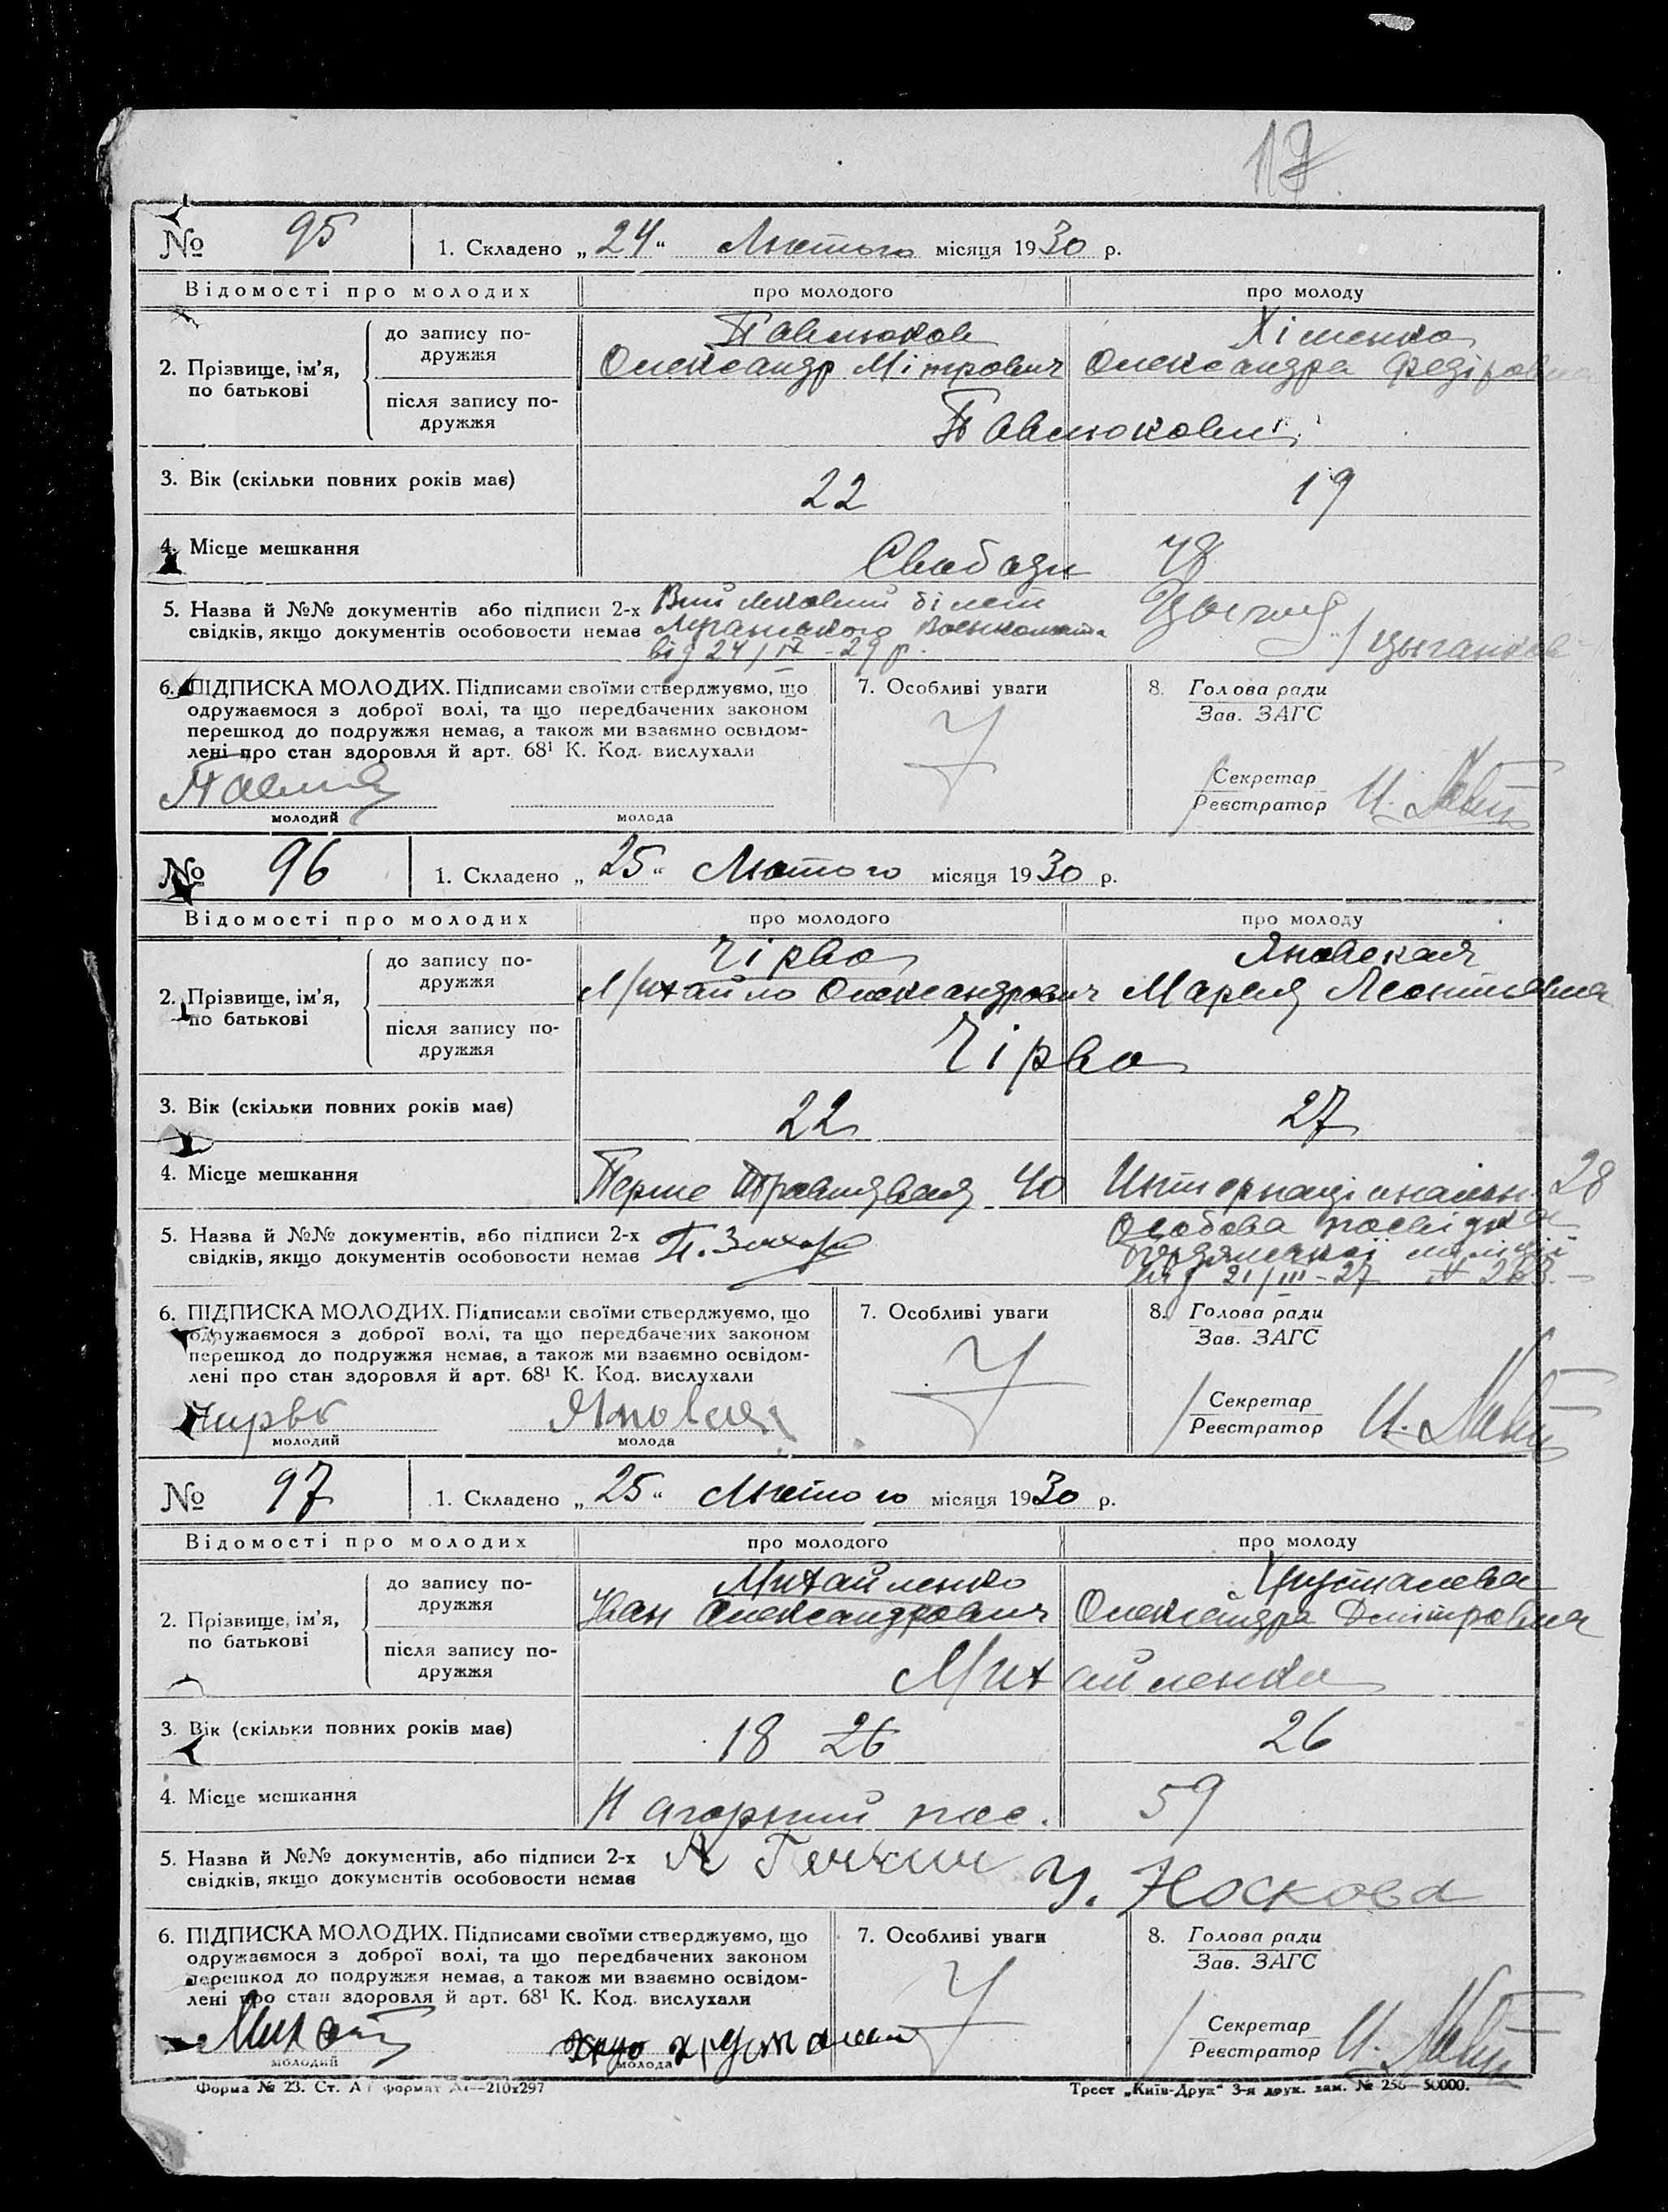 17
№ 95 1. Складено „24“ Лютого місяця 1930 р.
Відомості про молодих про молодого про молоду
2. Прізвище, ім'я, по батькові
до запису подружжя
Павлюков Хіменко
Олександр Мітрович Олександра Федіровна
після запису подружжя
Павлюкови
3. Вік (скільки повних років має) 22 19
4. Місце мешкання Свободи 48
5. Назва й №№ документів або підписи 2-х
свідків, якщо документів особовости немає
білет
Военкомата
від 24/IX-29 р.
Цыганков
6. ПІДПИСКА МОЛОДИХ. Підписами своїми стверджуємо, що
одружаємося з доброї волі, та що передбачених законом
перешкод до подружжя немає, а також ми взаємно освідом-
лені про стан здоровля й арт. 68¹ К. Код. вислухали
молодий молода
7. Особливі уваги
8. Голова ради
Зав. ЗАГС
Секретар
Реєстратор
№ 96 1. Складено „25“ Лютого місяця 1930 р.
Відомості про молодих про молодого про молоду
2. Прізвище, ім'я, по батькові
до запису подружжя
Чірва Яновская
Михайло Олександрович Мария Леонтьевна
після запису подружжя
Чірва
3. Вік (скільки повних років має) 22 27
4. Місце мешкання Перше 40 Интернаціональн. 28
5. Назва й №№ документів, або підписи 2-х
свідків, якщо документів особовости немає
Особова посвідка
міліції
від 21/III-27 N
6. ПІДПИСКА МОЛОДИХ. Підписами своїми стверджуємо, що
одружаємося з доброї волі, та що передбачених законом
перешкод до подружжя немає, а також ми взаємно освідом-
лені про стан здоровля й арт. 68¹ К. Код. вислухали
молодий молода
7. Особливі уваги
8. Голова ради
Зав. ЗАГС
Секретар
Реєстратор
№ 97 1. Складено „25“ Лютого місяця 1930 р.
Відомості про молодих про молодого про молоду
2. Прізвище, ім'я, по батькові
до запису подружжя
Михайленко Хрусталева
Іван Олександрович Олександра Дмітровна
після запису подружжя
Михайленко
3. Вік (скільки повних років має) 18 26 26
4. Місце мешкання Нагорний пос. 59
5. Назва й №№ документів, або підписи 2-х
свідків, якщо документів особовости немає
У. Носкова
6. ПІДПИСКА МОЛОДИХ. Підписами своїми стверджуємо, що
одружаємося з доброї волі, та що передбачених законом
перешкод до подружжя немає, а також ми взаємно освідом-
лені про стан здоровля й арт. 68¹ К. Код. вислухали
молодий молода
7. Особливі уваги
8. Голова ради
Зав. ЗАГС
Секретар
Реєстратор
Форма № 23. Ст. А формат А—210x297
Трест „Київ-Друк“ 3-я друк. зам. № 256—50000.